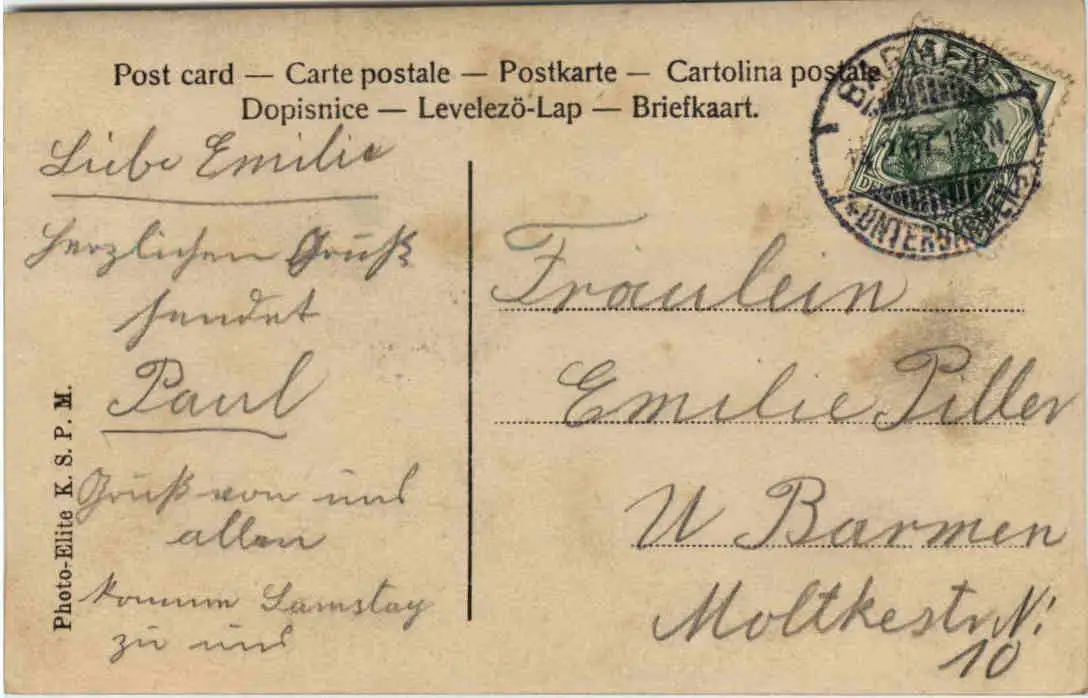 Post card — Carte postale — Postkarte — Cartolina postale
Dopisnice — Levelezö-Lap — Briefkaart.
Liebe Emilie
Herzlichen Gruß
sendet
Paul
Gruß von uns
allen
komme Samstag
zu uns
Photo-Elite K. S. P. M.
BARMEN
UNTERBARMEN
Fräulein
Emilie Piller
U Barmen
Moltkestr N:
10